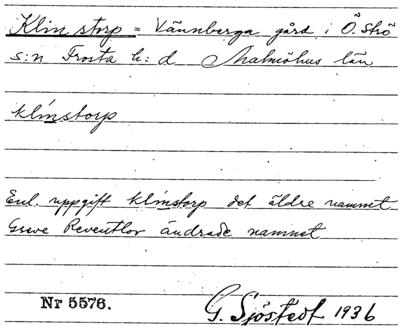 Klinstorp = Vännberga gård i Ö. Strö
s:n Frosta h:d Malmöhus län
klinstorp
Enl. uppgift klinstorp det äldre namnet
Greve Reventlov ändrade namnet
Nr 5576.
G. Sjöstedt 1936